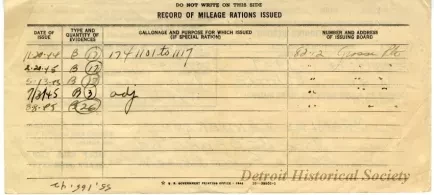 DO NOT WRITE ON THIS SIDE
RECORD OF MILEAGE RATIONS ISSUED
DATE OF ISSUE TYPE AND QUANTITY OF EVIDENCES GALLONAGE AND PURPOSE FOR WHICH ISSUED (IF SPECIAL RATION) NUMBER AND ADDRESS OF ISSUING BOARD
11-20-44 B 17 1741101 to 1117 82-2 Grosse Pte
2-20-45 B 17 " " "
B " " "
7/2/45 B 3 adj " " "
B 26 " " "
U. S. GOVERNMENT PRINTING OFFICE
Detroit Historical Society